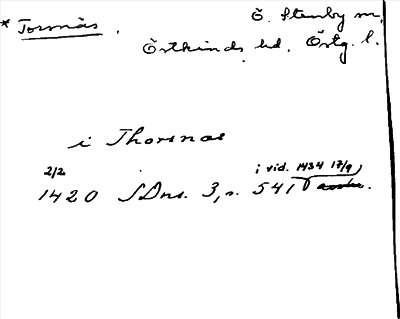 * Tormäs. Ö. Stenby sn,
Östkinds hd. Östg. l.
i Thorsnäs
2/2 i vid. 1434 17/9)
1420 SDns. 3, s. 541